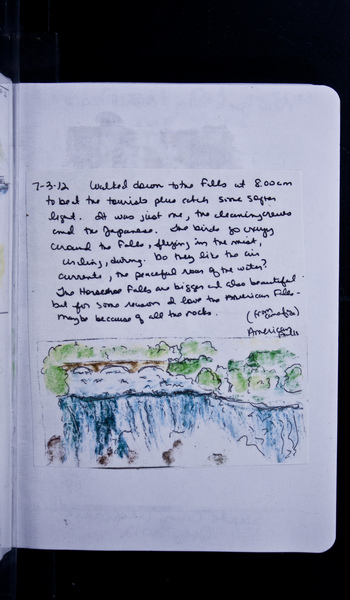 7-3-12 Walked down to the Falls at 8:00am
to beat the tourists plus catch some softer
light. It was just me, the cleaning crews
and the Japanese. The birds go crazy
around the Falls, flying in the mist,
circling, diving. Do they like the air
currents, the peaceful roar of the water?
The Horseshoe Falls are bigger and also beautiful
but for some reason I love the American Falls -
maybe because of all the rocks.
(from
American
Falls